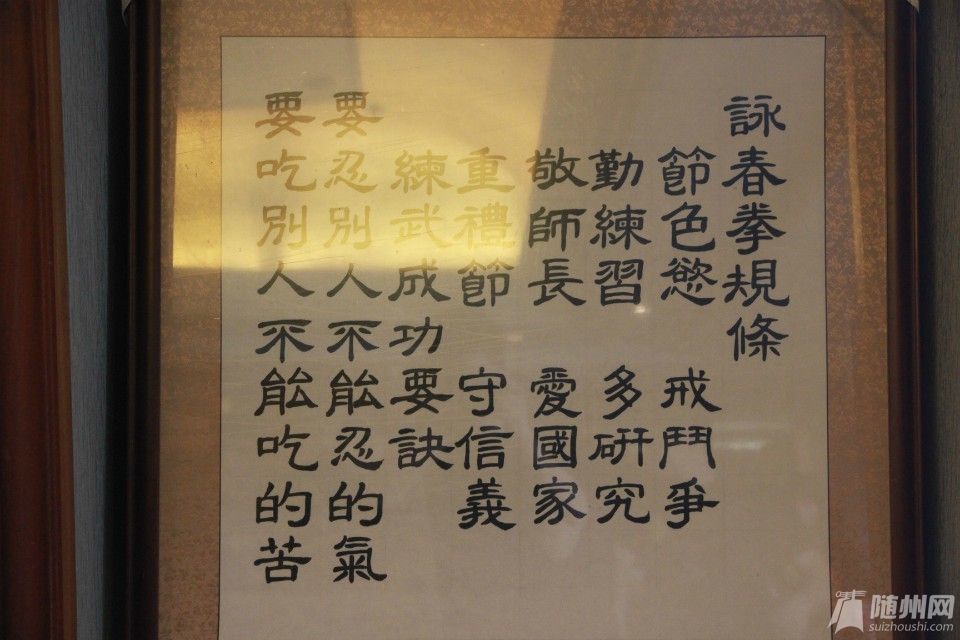 詠春拳規條
節色慾 戒鬥爭
勤練習 多研究
敬師長 愛國家
重禮節 守信義
練武成功要訣
要忍別人不能忍的氣
要吃別人不能吃的苦
随州网
suizhoushi.com